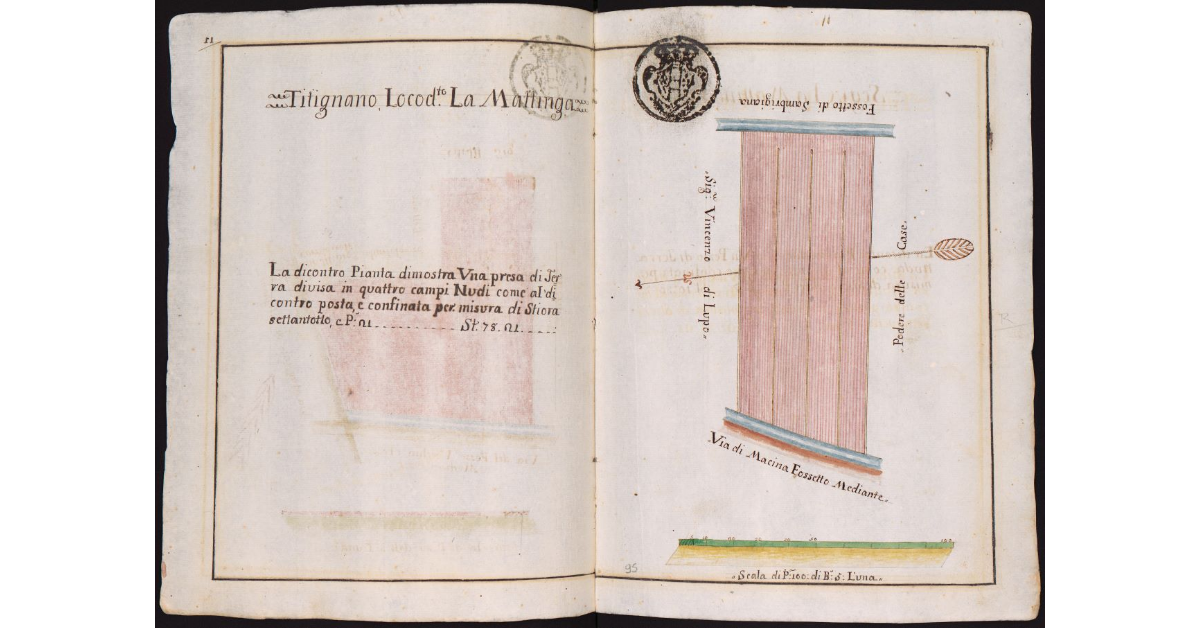 11
Titignano, Locod.to La Mattinga
La dicontro Pianta dimostra Vna presa di Ter
ra divisa in quattro campi Nudi come al di
contro posta, e confinata per misura di Stiora
settantotto, e P:
St. 78.
Fossetto di Sambrigiana
Sig.re Vincenzo di Lupo
Podere delle Case.
Via di Macina Fossetto Mediante.
100
95
Scala di P. 100: di B.a 5: L'una.